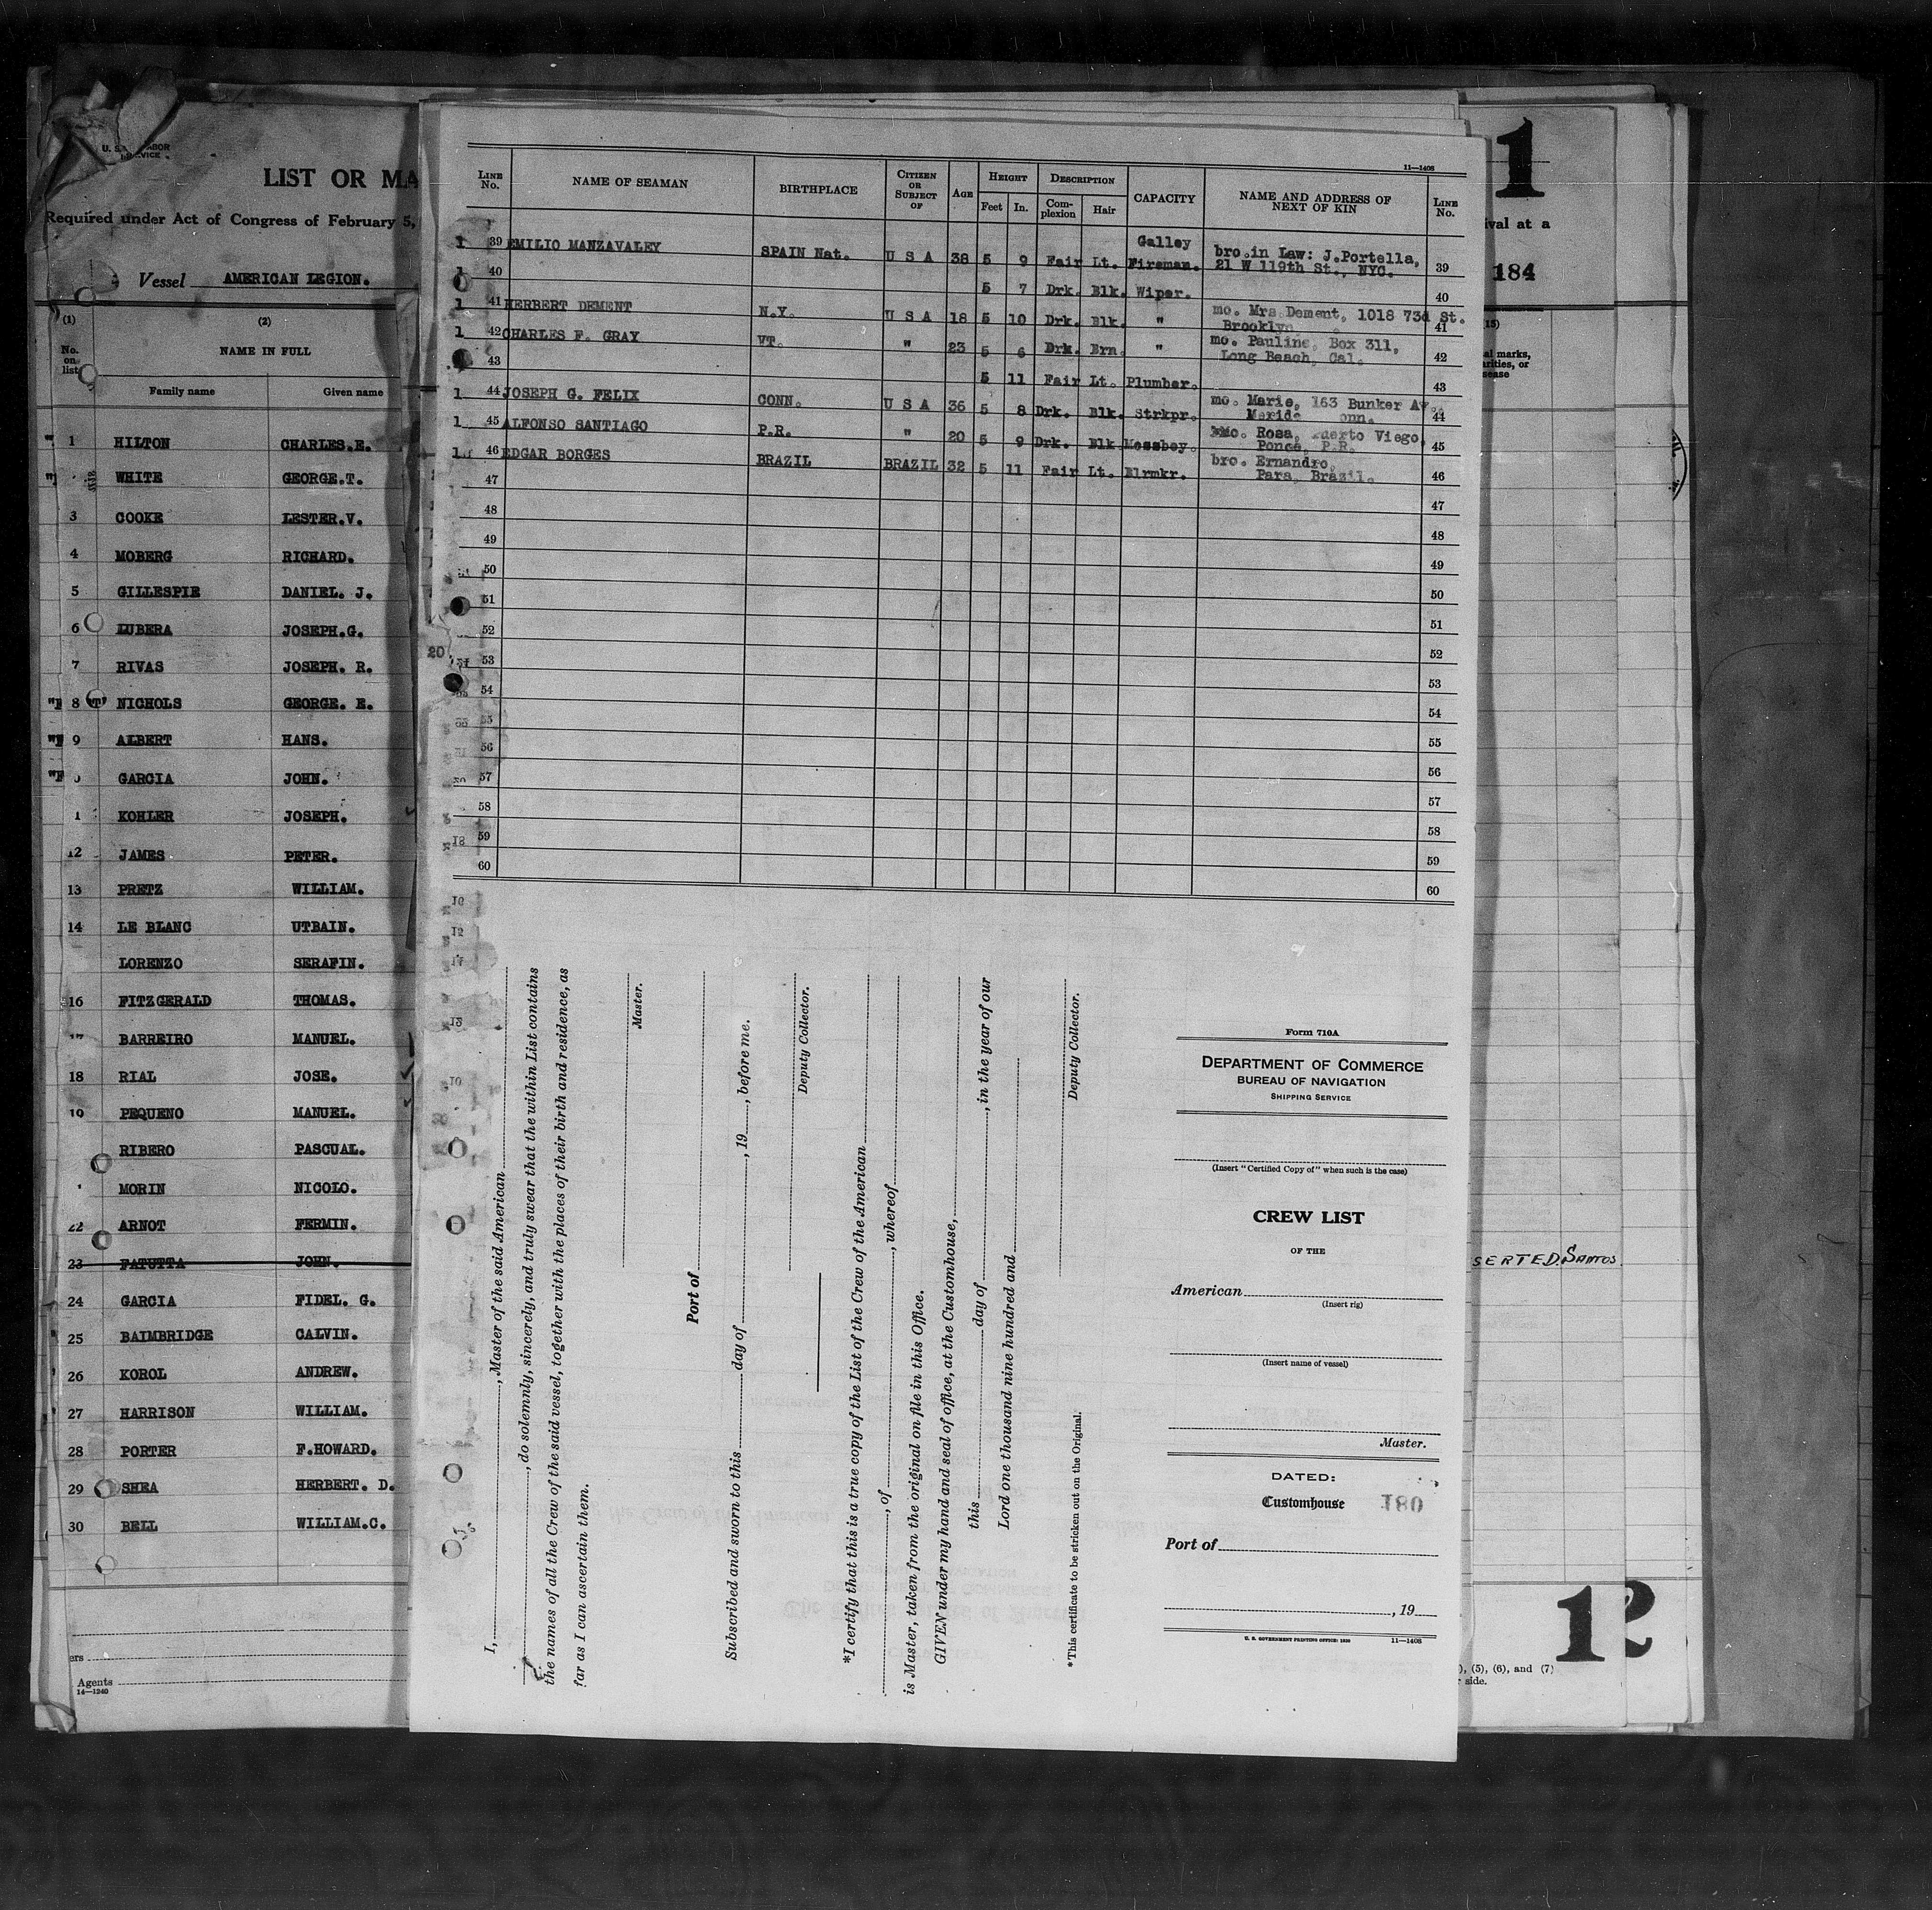 LIST OR MA
Required under Act of Congress of February 5,
Vessel AMERICAN LEGION.
(1) (2)
No. on list NAME IN FULL
Family name Given name
1 HILTON CHARLES.E.
WHITE GEORGE.T.
3 COOKE LESTER.V.
4 MOBERG RICHARD.
5 GILLESPIE DANIEL. J.
6 LUBERA JOSEPH.G.
7 RIVAS JOSEPH. R.
8 NICHOLS GEORGE. E.
9 ALBERT HANS.
GARCIA JOHN.
1 KOHLER JOSEPH.
12 JAMES PETER.
13 PRETZ WILLIAM.
14 LE BLANC UTBAIN.
LORENZO SERAFIN.
16 FITZGERALD THOMAS.
17 BARREIRO MANUEL.
18 RIAL JOSE.
19 PEQUENO MANUEL.
RIBERO PASCUAL.
MORIN NICOLO.
22 ARNOT FERMIN.
23 FATUTTA JOHN.
24 GARCIA FIDEL. G.
25 BAIMBRIDGE CALVIN.
26 KOROL ANDREW.
27 HARRISON WILLIAM.
28 PORTER F.HOWARD.
29 SHEA HERBERT. D.
30 BELL WILLIAM.C.
ers
Agents
14—1240
11—1408
LINE No. NAME OF SEAMAN BIRTHPLACE CITIZEN OR SUBJECT OF AGE HEIGHT Feet In. DESCRIPTION Complexion Hair CAPACITY NAME AND ADDRESS OF NEXT OF KIN LINE No.
1 39 EMILIO MANZAVALEY SPAIN Nat. U S A 38 5 9 Fair Lt. Galley Fireman. bro.in Law: J.Portella, 21 W 119th St., NYC. 39
1 40 5 7 Drk. Blk. Wiper. 40
1 41 HERBERT DEMENT N.Y. U S A 18 5 10 Drk. Blk. " mo. Mrs Dement, 1018 73d St. Brooklyn 41
1 42 CHARLES F. GRAY VT. " 23 5 6 Drk. Brn. " mo. Pauline, Box 311, Long Beach, Cal. 42
43 5 11 Fair Lt. Plumber. 43
1 44 JOSEPH G. FELIX CONN. U S A 36 5 8 Drk. Blk. Strkpr. mo. Marie, 163 Bunker Av. 44
1 45 ALFONSO SANTIAGO P.R. " 20 5 9 Drk. Blk Messboy. mo. Rosa, Viego, Ponce, P.R. 45
1 46 EDGAR BORGES BRAZIL BRAZIL 32 5 11 Fair Lt. Blrmkr. bro. Ernandro, Para, Brazil. 46
47 47
48 48
49 49
50 50
51 51
52 52
53 53
54 54
55 55
56 56
57 57
58 58
59 59
60 60
20
I, , Master of the said American
, do solemnly, sincerely, and truly swear that the within List contains
the names of all the Crew of the said vessel, together with the places of their birth and residence, as
far as I can ascertain them.
Master.
Port of
Subscribed and sworn to this day of , 19 , before me.
Deputy Collector.
*I certify that this is a true copy of the List of the Crew of the American
, of , whereof
is Master, taken from the original on file in this Office.
GIVEN under my hand and seal of office, at the Customhouse,
this day of , in the year of our
Lord one thousand nine hundred and
Deputy Collector.
*This certificate to be stricken out on the Original.
Form 710A
DEPARTMENT OF COMMERCE
BUREAU OF NAVIGATION
SHIPPING SERVICE
(Insert "Certified Copy of" when such is the case)
CREW LIST
OF THE
American
(Insert rig)
(Insert name of vessel)
Master.
DATED:
Customhouse
Port of
, 19
U. S. GOVERNMENT PRINTING OFFICE: 1930 11—1408
1
ival at a
184
(15)
al marks,
SERTED.SANTOS
12
), (5), (6), and (7)
r side.